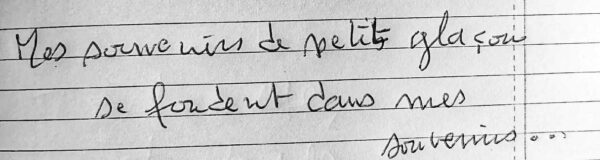 Mes souvenirs de petit glaçon
se fondent dans mes
souvenirs...